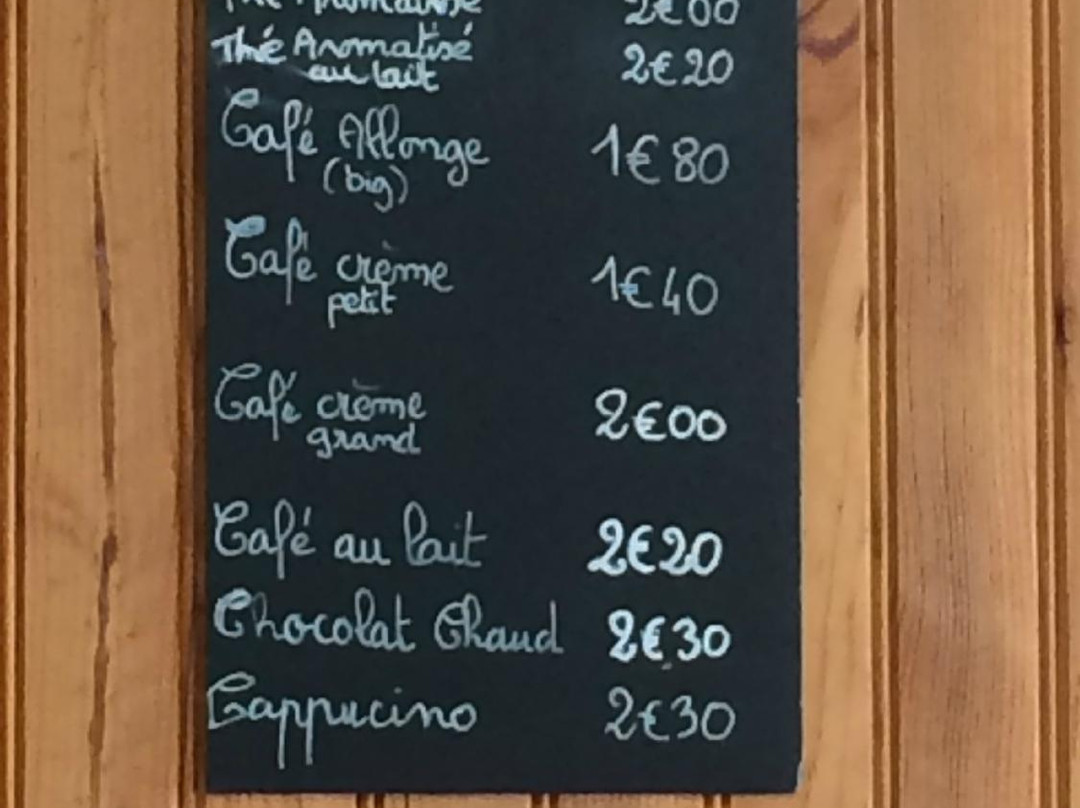 Thé Aromatisé 2€00
Thé Aromatisé 2€20
au lait
Café Allonge 1€80
(big)
Café crème 1€40
petit
Café crème 2€00
grand
Café au lait 2€20
Chocolat Chaud 2€30
Cappucino 2€30